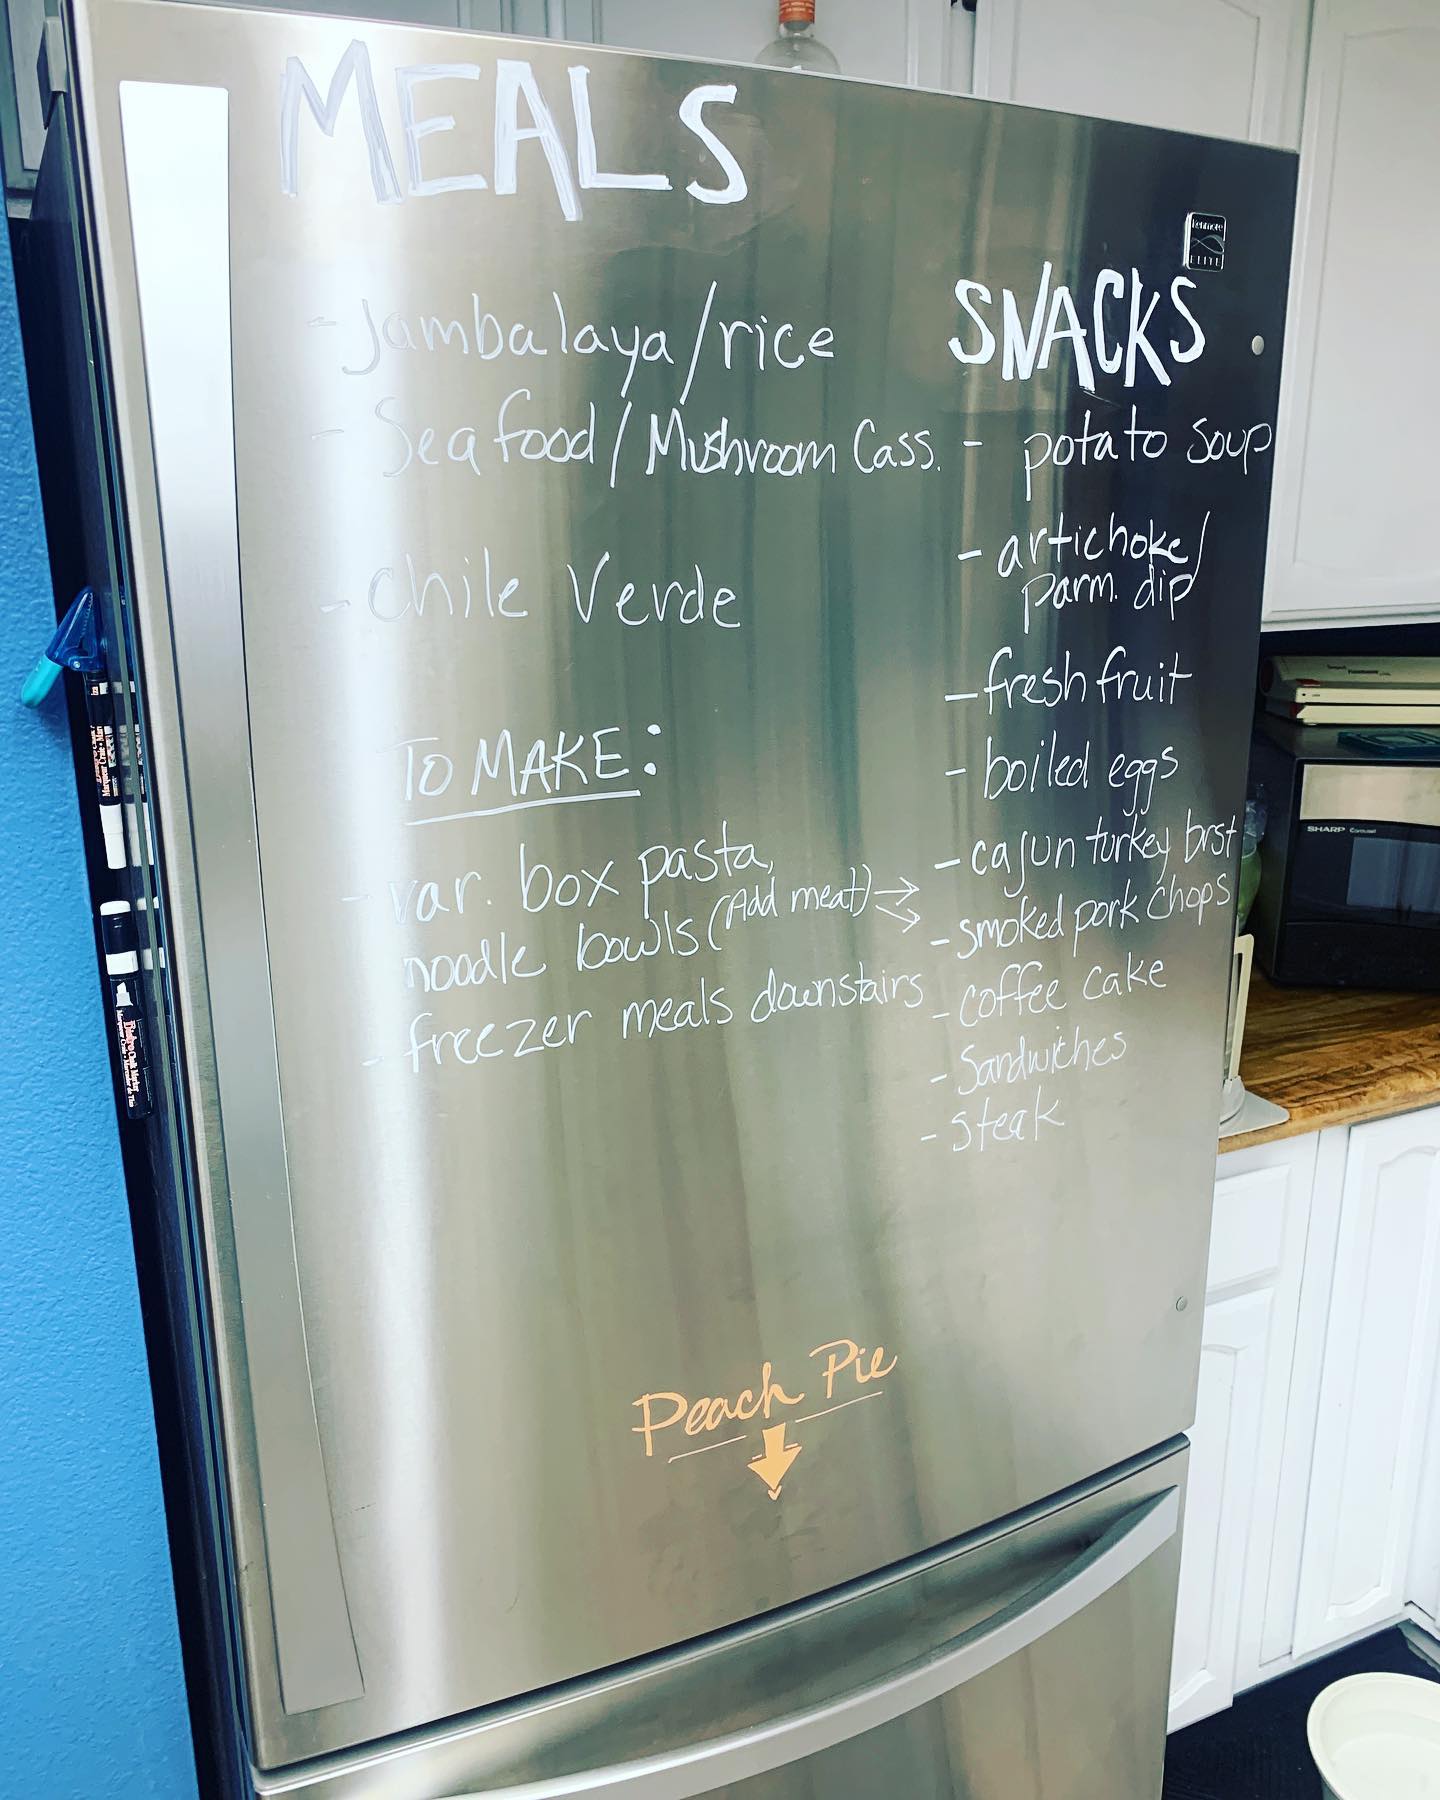 MEALS
- Jambalaya/rice
- Seafood/Mushroom Cass.
- Chile Verde
TO MAKE:
- var. box pasta,
noodle bowls (Add meat)
- freezer meals downstairs
kenmore
ELITE
SNACKS
- potato soup
- artichoke/
parm. dip
- fresh fruit
- boiled eggs
- cajun turkey brst
- smoked pork chops
- coffee cake
- Sandwiches
- steak
Peach Pie
SHARP Carousel
Bistro Chalk Marker